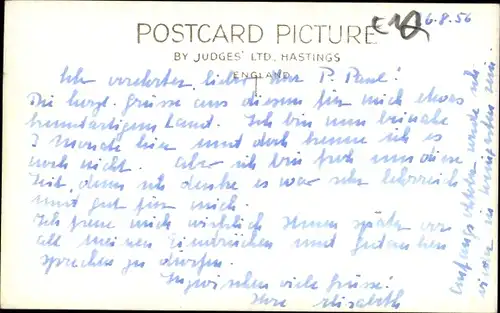 6.8.56
POSTCARD PICTURE
BY JUDGES' LTD, HASTINGS
ENGLAND
Sehr verehrter, lieber Herr P. Paul!
Die herzl. Grüsse aus diesem für mich etwas
fremdartigem Land. Ich bin nun beinahe
2 Monate hier und doch kenne ich es
noch nicht. Aber ich bin froh um diese
Zeit, denn ich denke es war sehr lehrreich
und gut für mich.
Ich freue mich wirklich Ihnen später von
all meinen Eindrücken und Gedanken
sprechen zu dürfen.
Inzwischen viele Grüsse!
Ihre Elisabeth
Anfangs Oktober werde ich
wieder in